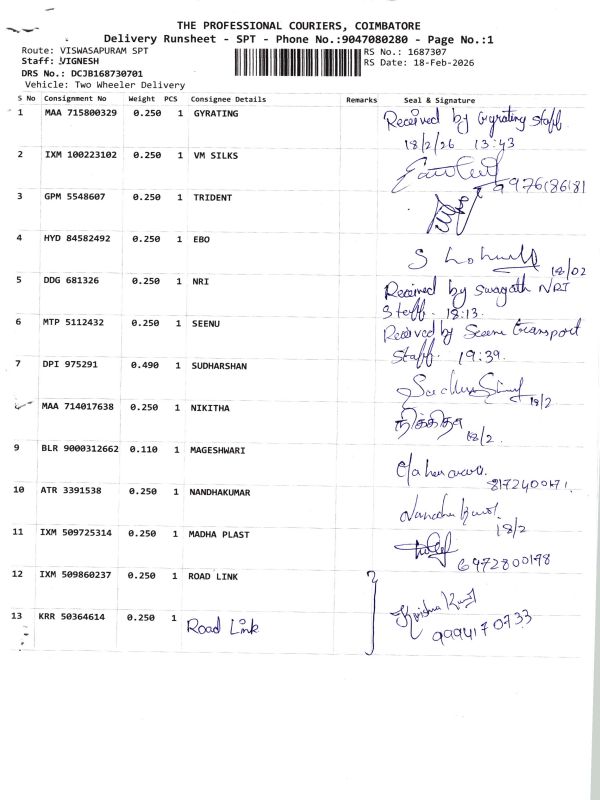 THE PROFESSIONAL COURIERS, COIMBATORE
Delivery Runsheet - SPT - Phone No.:9047080280 - Page No.:1
Route: VISWASAPURAM SPT RS No.: 1687307
Staff: VIGNESH RS Date: 18-Feb-2026
DRS No.: DCJB168730701
Vehicle: Two Wheeler Delivery
S No Consignment No Weight PCS Consignee Details Remarks Seal & Signature
1 MAA 715800329 0.250 1 GYRATING Received by Gyrating staff
18/2/26 13:43
2 IXM 100223102 0.250 1 VM SILKS
9976186181
3 GPM 5548607 0.250 1 TRIDENT
4 HYD 84582492 0.250 1 EBO
18/02
5 DDG 681326 0.250 1 NRI Received by Swagath NRI
Staff. 18:13.
6 MTP 5112432 0.250 1 SEENU Received by Seenu transport
Staff. 19:39.
7 DPI 975291 0.490 1 SUDHARSHAN
18/2
MAA 714017638 0.250 1 NIKITHA நிக்கிதா
18/2.
9 BLR 9000312662 0.110 1 MAGESHWARI
8172400171.
10 ATR 3391538 0.250 1 NANDHAKUMAR Nandha Kumar
18/2
11 IXM 509725314 0.250 1 MADHA PLAST
6972800198
12 IXM 509860237 0.250 1 ROAD LINK Krishna
13 KRR 50364614 0.250 1 Road Link 9994170733